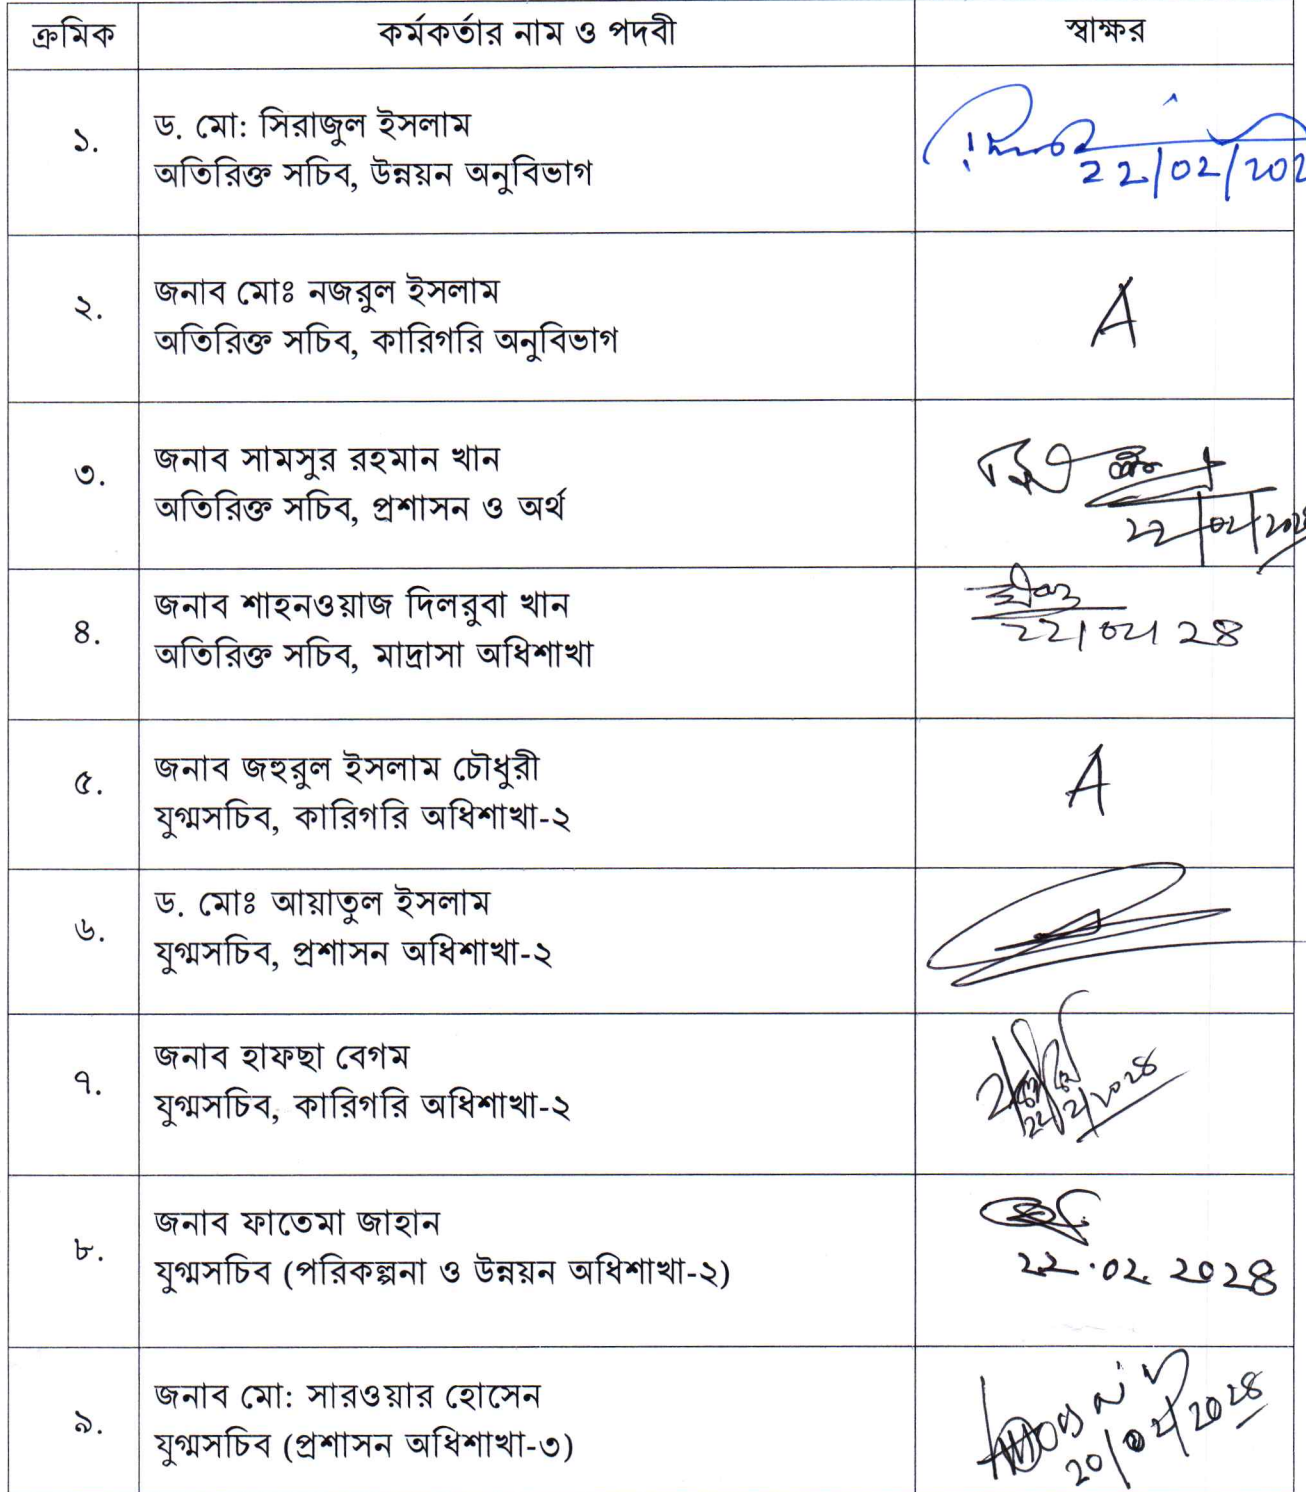 ক্রমিক কর্মকর্তার নাম ও পদবী স্বাক্ষর
১. ড. মো: সিরাজুল ইসলাম
অতিরিক্ত সচিব, উন্নয়ন অনুবিভাগ
২২/০২/২০২
২. জনাব মোঃ নজরুল ইসলাম
অতিরিক্ত সচিব, কারিগরি অনুবিভাগ
A
৩. জনাব সামসুর রহমান খান
অতিরিক্ত সচিব, প্রশাসন ও অর্থ
২২/০২/২০২৪
৪. জনাব শাহনওয়াজ দিলরুবা খান
অতিরিক্ত সচিব, মাদ্রাসা অধিশাখা
২২/০২/২৪
৫. জনাব জহুরুল ইসলাম চৌধুরী
যুগ্মসচিব, কারিগরি অধিশাখা-২
A
৬. ড. মোঃ আয়াতুল ইসলাম
যুগ্মসচিব, প্রশাসন অধিশাখা-২
৭. জনাব হাফছা বেগম
যুগ্মসচিব, কারিগরি অধিশাখা-২
২২/২/২০২৪
৮. জনাব ফাতেমা জাহান
যুগ্মসচিব (পরিকল্পনা ও উন্নয়ন অধিশাখা-২)
২২.০২.২০২৪
৯. জনাব মো: সারওয়ার হোসেন
যুগ্মসচিব (প্রশাসন অধিশাখা-৩)
২০/০২/২০২৪